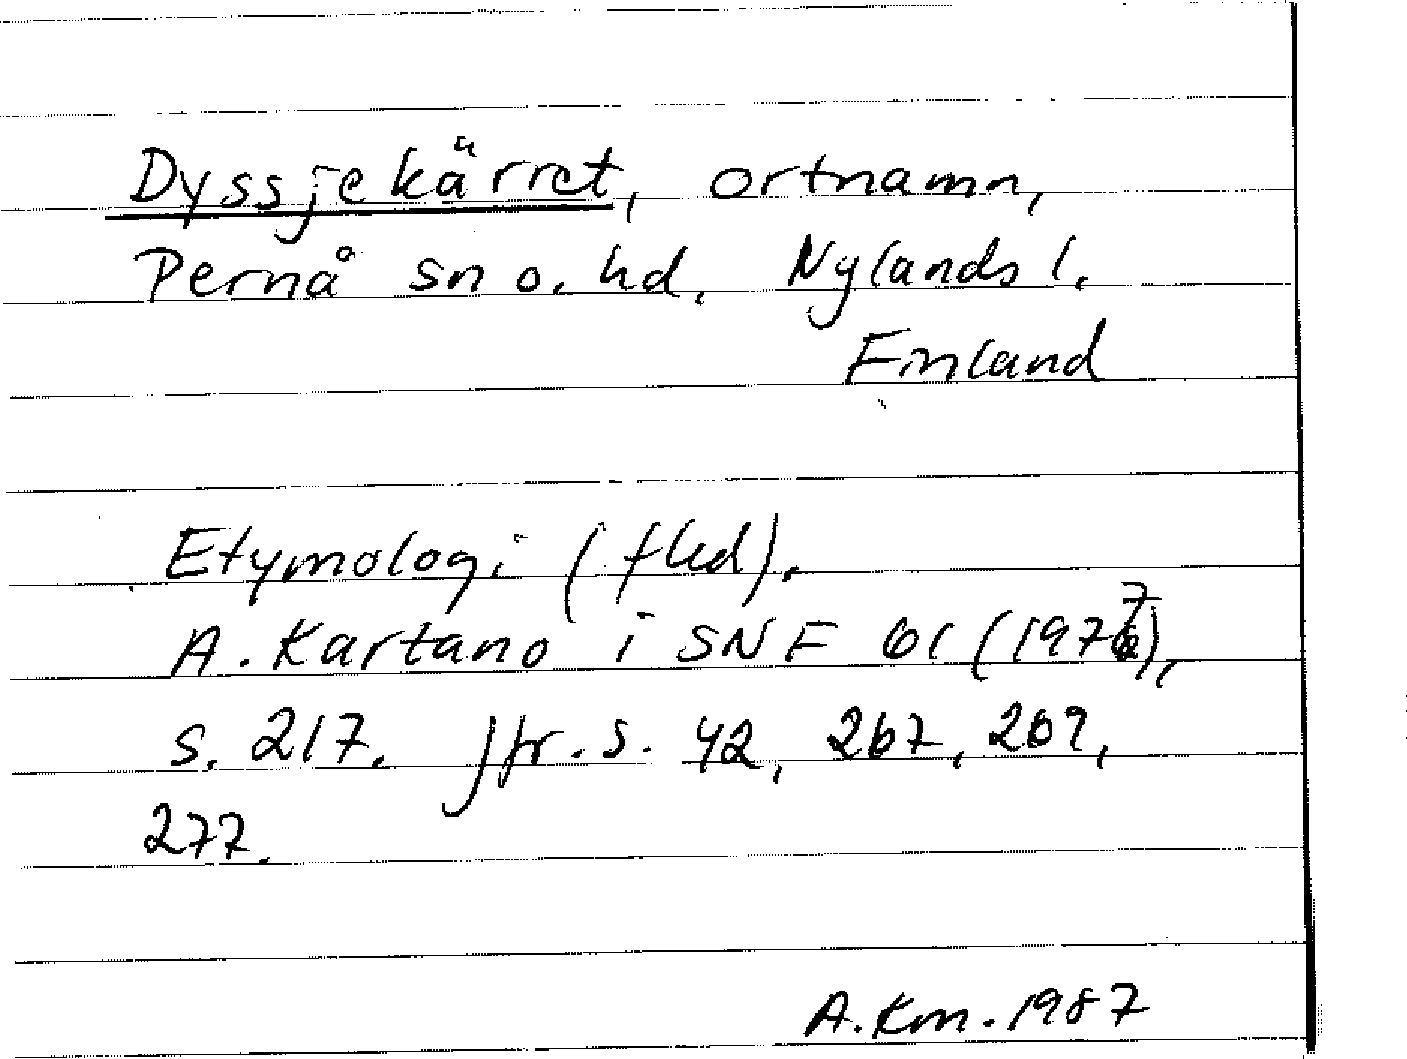 Dyssjekärret, ortnamn,
Pernå sn o. hd. Nylands l.
Finland
Etymologi (fled).
A. Kartano i SNF 61 (1977),
s. 217. Jfr. s. 42, 267, 269,
277.
A.Km. 1987